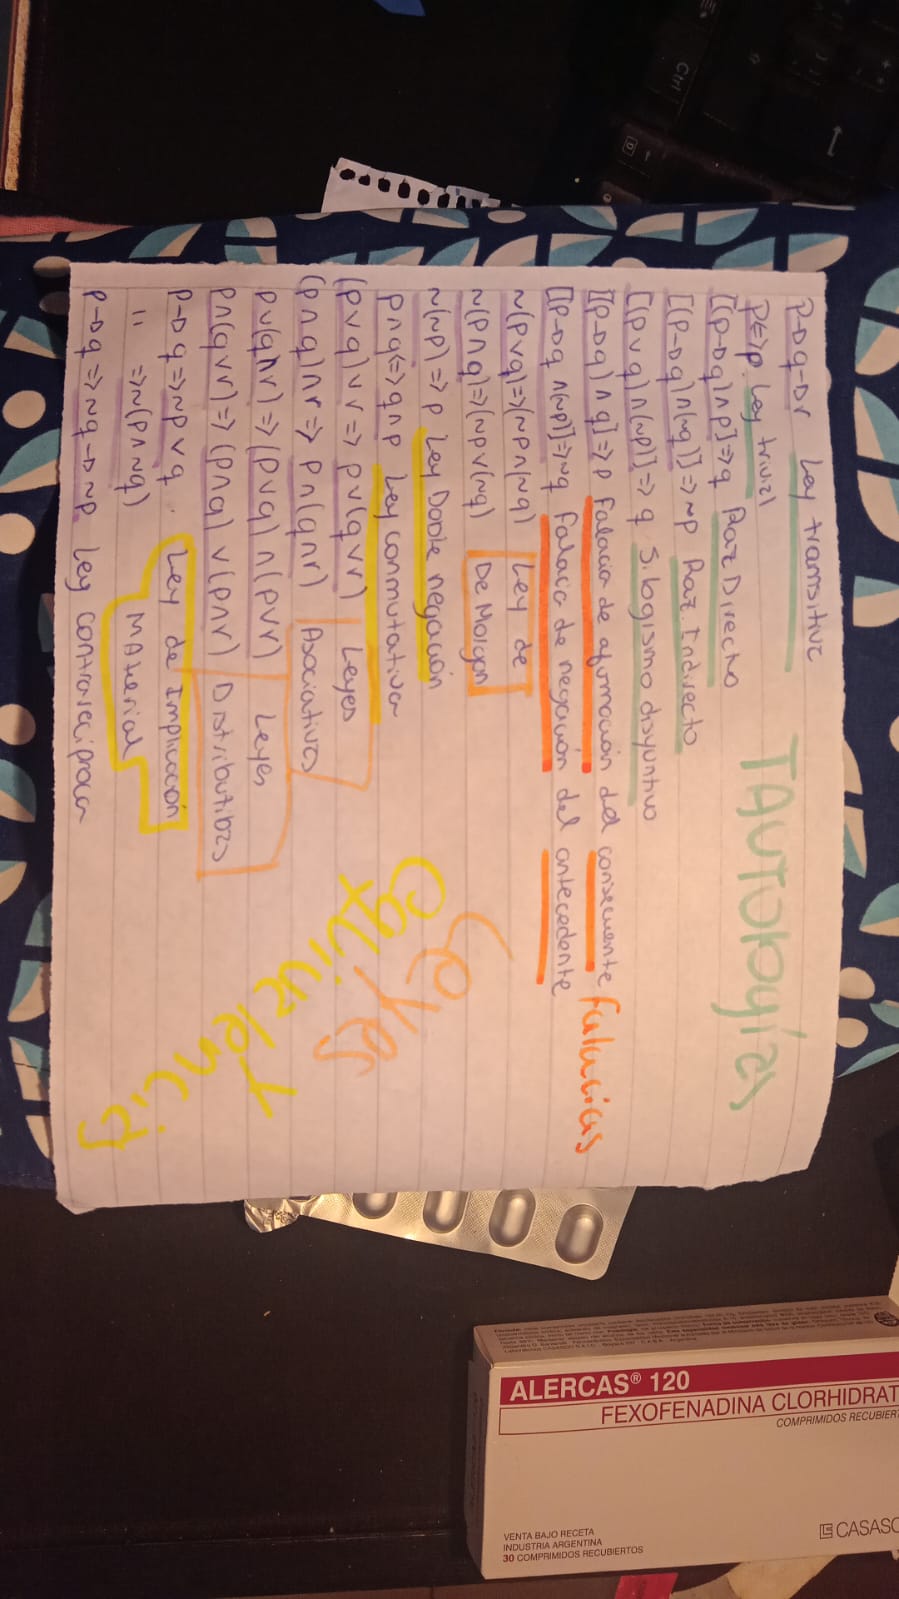 p→q→r Ley transitiva
TAUTologías
p<=>p. Ley trivial
[(p→q)∧p]=>q Raz Directo
[(p→q)∧(~q)]=>~p Raz. Indirecto
[(p∨q)∧(~p)]=>q Silogismo disyuntivo
[(p→q)∧q]=>p Falacia de afirmación del consecuente
Falacias
[(p→q ∧(~p)]=>~q Falacia de negación del antecedente
~(p∨q)=>(~p∧(~q) Ley de
~(p∧q)=>(~p∨(~q) De Morgan
~(~p)=>p Ley Doble negación
p∧q<=>q∧p Ley conmutativa
(p∨q)∨r=>p∨(q∨r) Leyes
(p∧q)∧r=>p∧(q∧r) Asociativas
p∨(q∧r)=>(p∨q)∧(p∨r) Leyes
p∧(q∨r)=>(p∧q)∨(p∧r) Distributibas
p→q=>~p∨q. Ley de Implicación
" =>~(p∧~q) MAterial
p→q=>~q→~p Ley contrarecíproca
Leyes
y
equivalencias
ALERCAS® 120
FEXOFENADINA CLORHIDRAT
COMPRIMIDOS RECUBIER
CASASC
VENTA BAJO RECETA
INDUSTRIA ARGENTINA
30 COMPRIMIDOS RECUBIERTOS
Ctrl